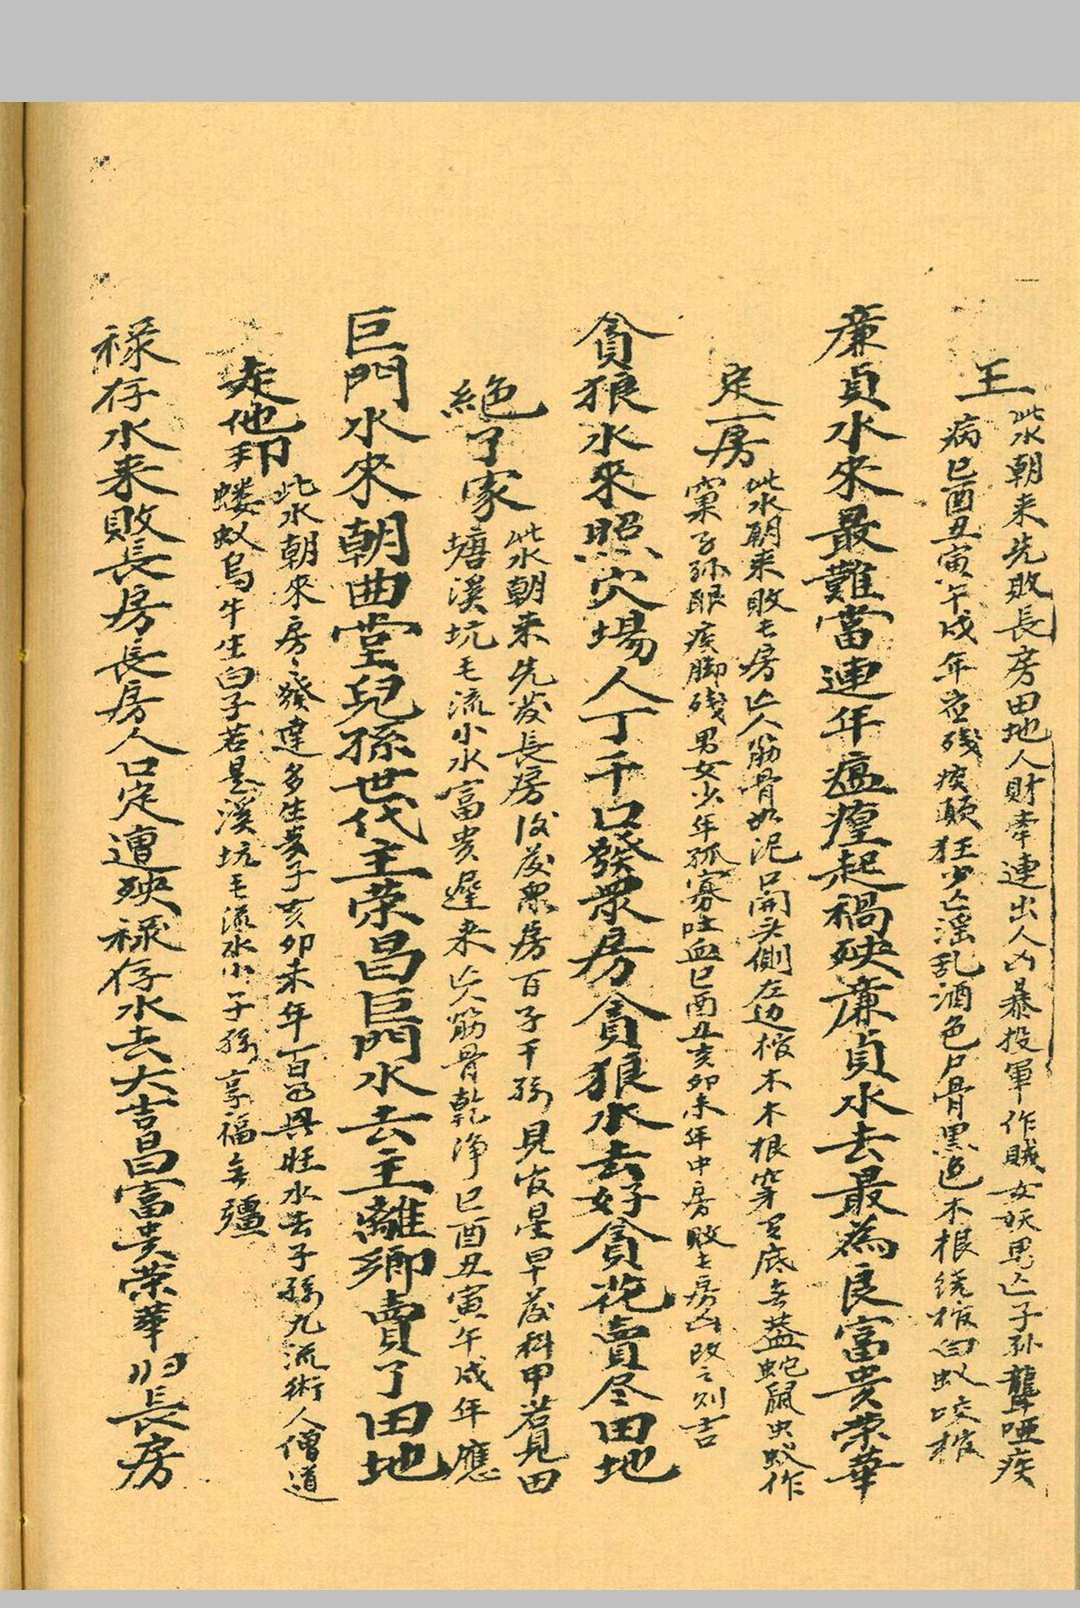 王
此水朝来先敗長房田地人財牽連出人凶暴投軍作賊女妖男亡子孙聾啞疾
病巳酉丑寅午戌年应残疾顛狂少亡淫乱酒色尸骨黑色木根绕棺白蚁咬棺
廉貞水來最難當連年瘟瘽起禍殃廉貞水去最為良富貴榮華
定一房
此水朝来敗七房亡人筋骨如泥口開头側左边棺木木根穿至底無蓋蛇鼠虫蚁作
窠子孙眼疾脚残男女少年孤寡吐血巳酉丑亥卯未年中房敗七房凶改之则吉
貪狼水來照穴場人丁千口發衆房貪狼水去好貪花賣尽田地
絶了家
此水朝来先發長房後發衆房百子千孫見官星早發科甲若見田
塘溪坑毛流小水富贵遲来亡人筋骨乾净巳酉丑寅午戌年應
巨門水來朝曲堂兒孫世代主荣昌巨門水去主離鄉賣了田地
走他邦
此水朝來房房發達多生貴子亥卯未年百口興旺水去子孫九流術人僧道
螻蚁烏牛生白子若是溪坑毛流水小子孫享福無疆
禄存水来敗長房長房人口定遭殃禄存水去大吉昌富貴荣華归長房